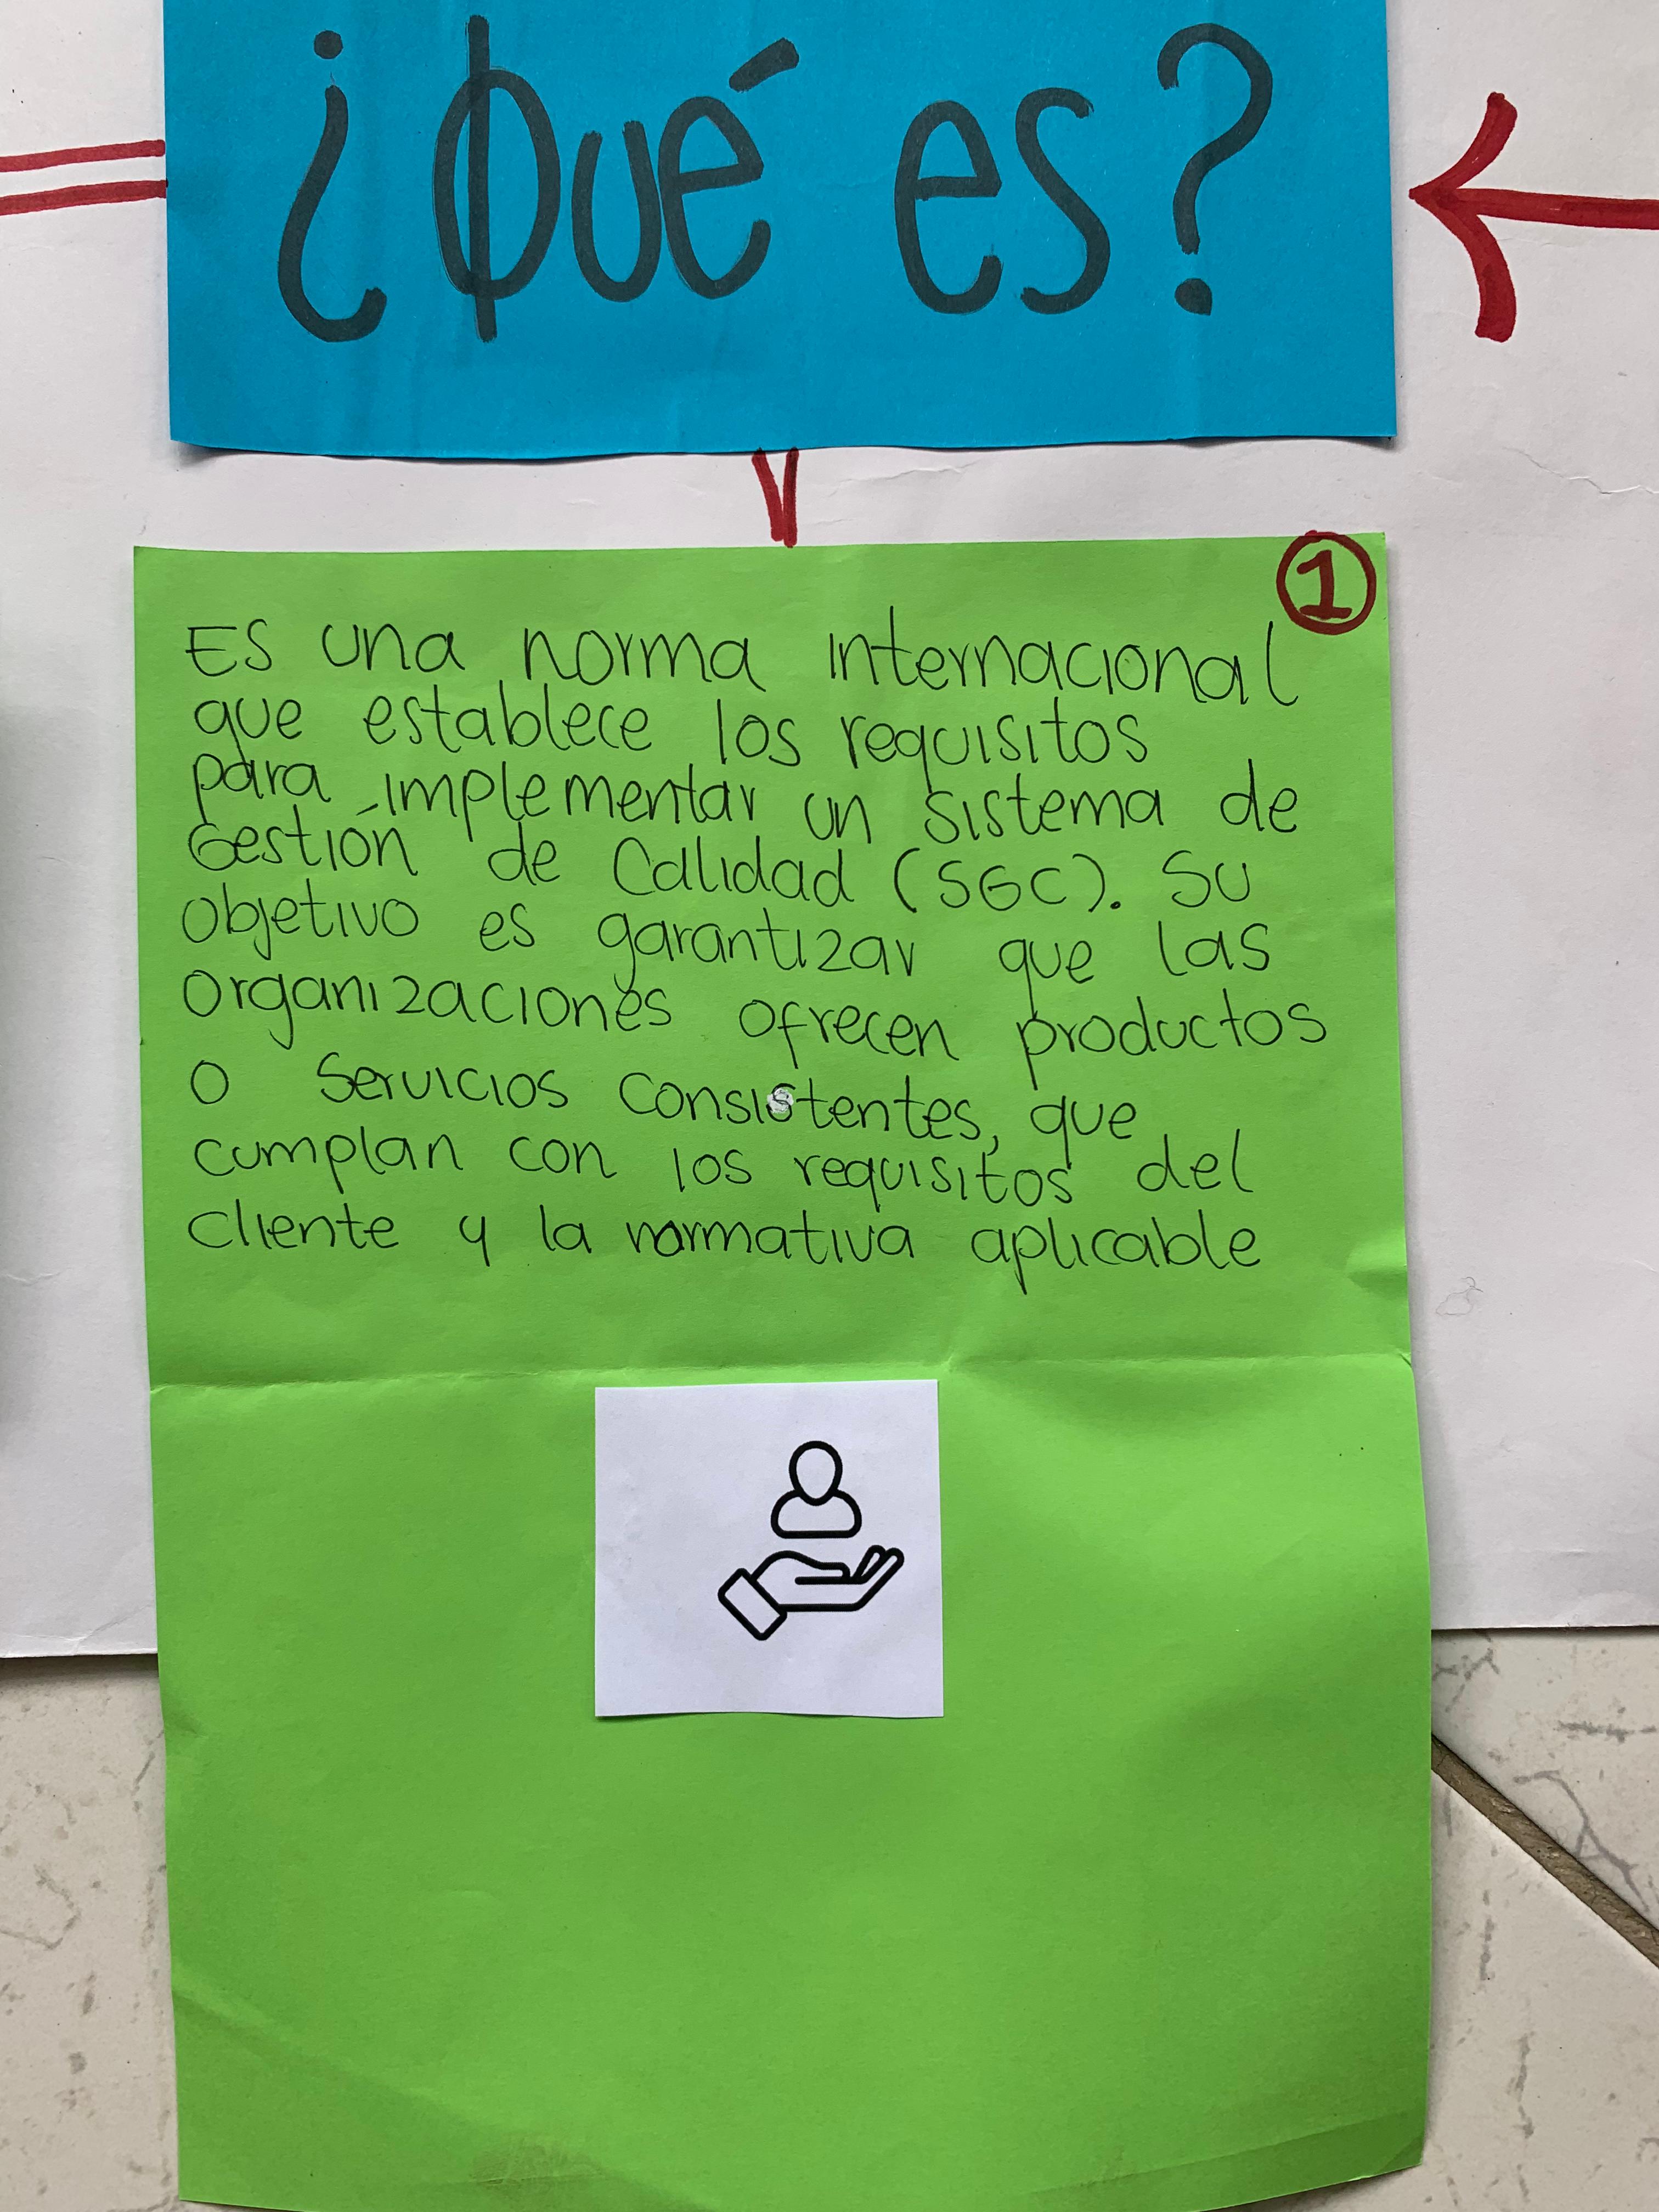 ¿Qué es?
1
Es una norma internacional
que establece los requisitos
para implementar un sistema de
Gestión de Calidad (SGC). Su
objetivo es garantizar que las
organizaciones ofrecen productos
o servicios consistentes, que
cumplan con los requisitos del
cliente y la normativa aplicable